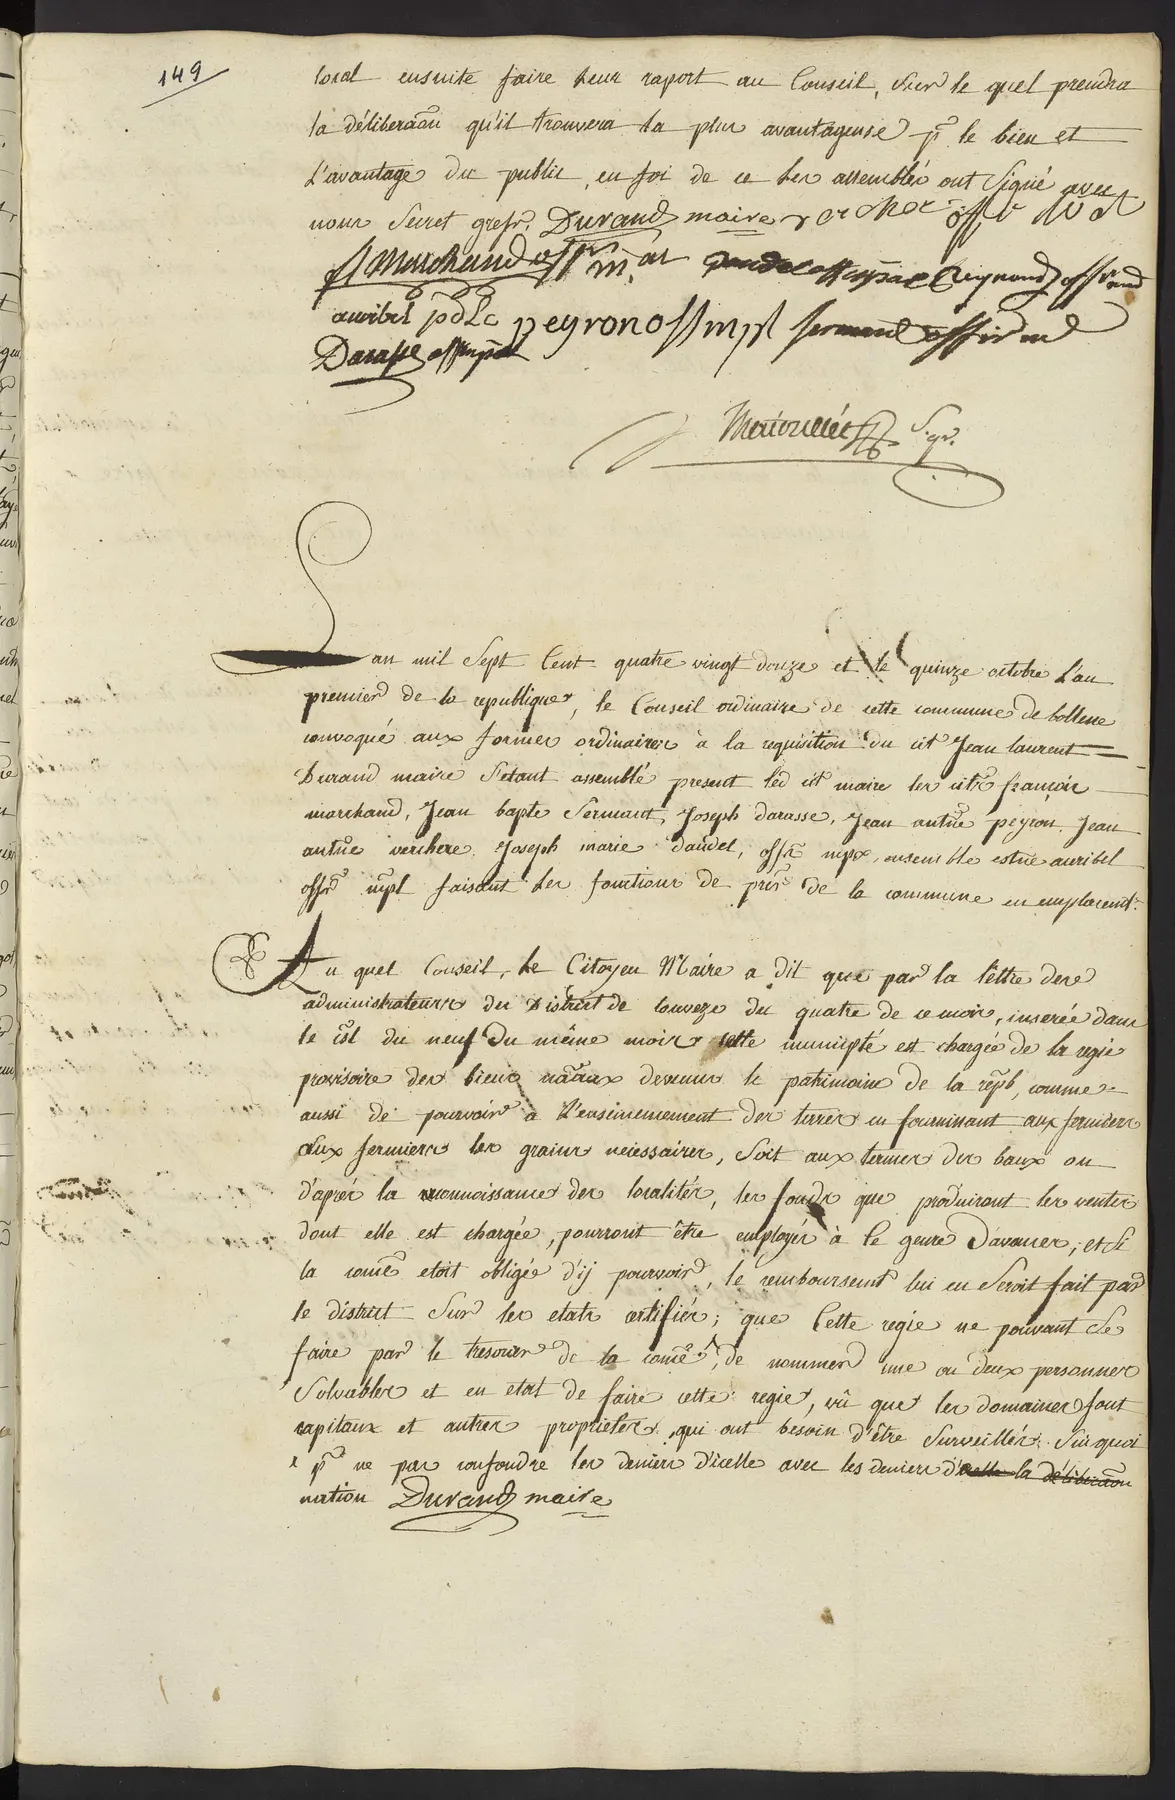 149
local ensuite faire leur raport au Conseil, Sur le quel prendra
la déliberaõn qu'il trouvera la plus avantageuse pr le bien et
L'avantage du public, en foi de ce les assemblés ont Signé avec
nour Secret grefr. Durand maire
fs Marchand offr mal daudel off mpal Reynaud off
auribel pdlc peyron off mpl Sermand off
Darasse off mpal
Sgr.
L'an mil Sept Cent quatre vingt douze et le quinze octobre L'an
premier de la republique, le Conseil ordinaire de cette commune de bollene
convoqué aux formes ordinaires à la requisition du cit Jean laurent
Durand maire S'etant assemblé present led cit maire les citns françois
marchand, Jean bapte Sermant, Joseph darasse, Jean antne peyron, Jean
antne verchere, Joseph marie daudel, offrs mpx, ensemble estne auribel
offr mpl faisant les fonctions de prcr de la commune en emplacemt.
Au quel Conseil, Le Citoyen Maire a dit que par la lettre des
administrateurs du District de louveze du quatre de ce moir, inserée dans
le csl du neuf Du même mois cette municipté est chargée de la regie
provisoire des biens naõaux devenus le patrimoine de la repb, comme
aussi de pourvoir a L'ensemencement des terres en fournissant aux fermiers
aux fermiers les grains necessaires, Soit aux termes des baux ou
d'après la reconnoissance des localités, les fonds que produiront les ventes
dont elle est chargée, pourront être employés à le genre D'avances; et Si
la come etoit obligée d'ij pourvoir, le remboursemt lui en Seroit fait par
le district Sur les etats certifiés; que Cette regie ne pouvant Se
faire par le tresorier de la come x, de nommer une ou deux personnes
Solvables et en etat de faire cette regie, vû que les domaines font
capitaux et autres proprietés, qui ont besoin d'être Surveillés. Sur quoi
x pr ne pas confondre les deniers d'icelle avec les deniers d'icelle la déliberaõn
nation Durand maire